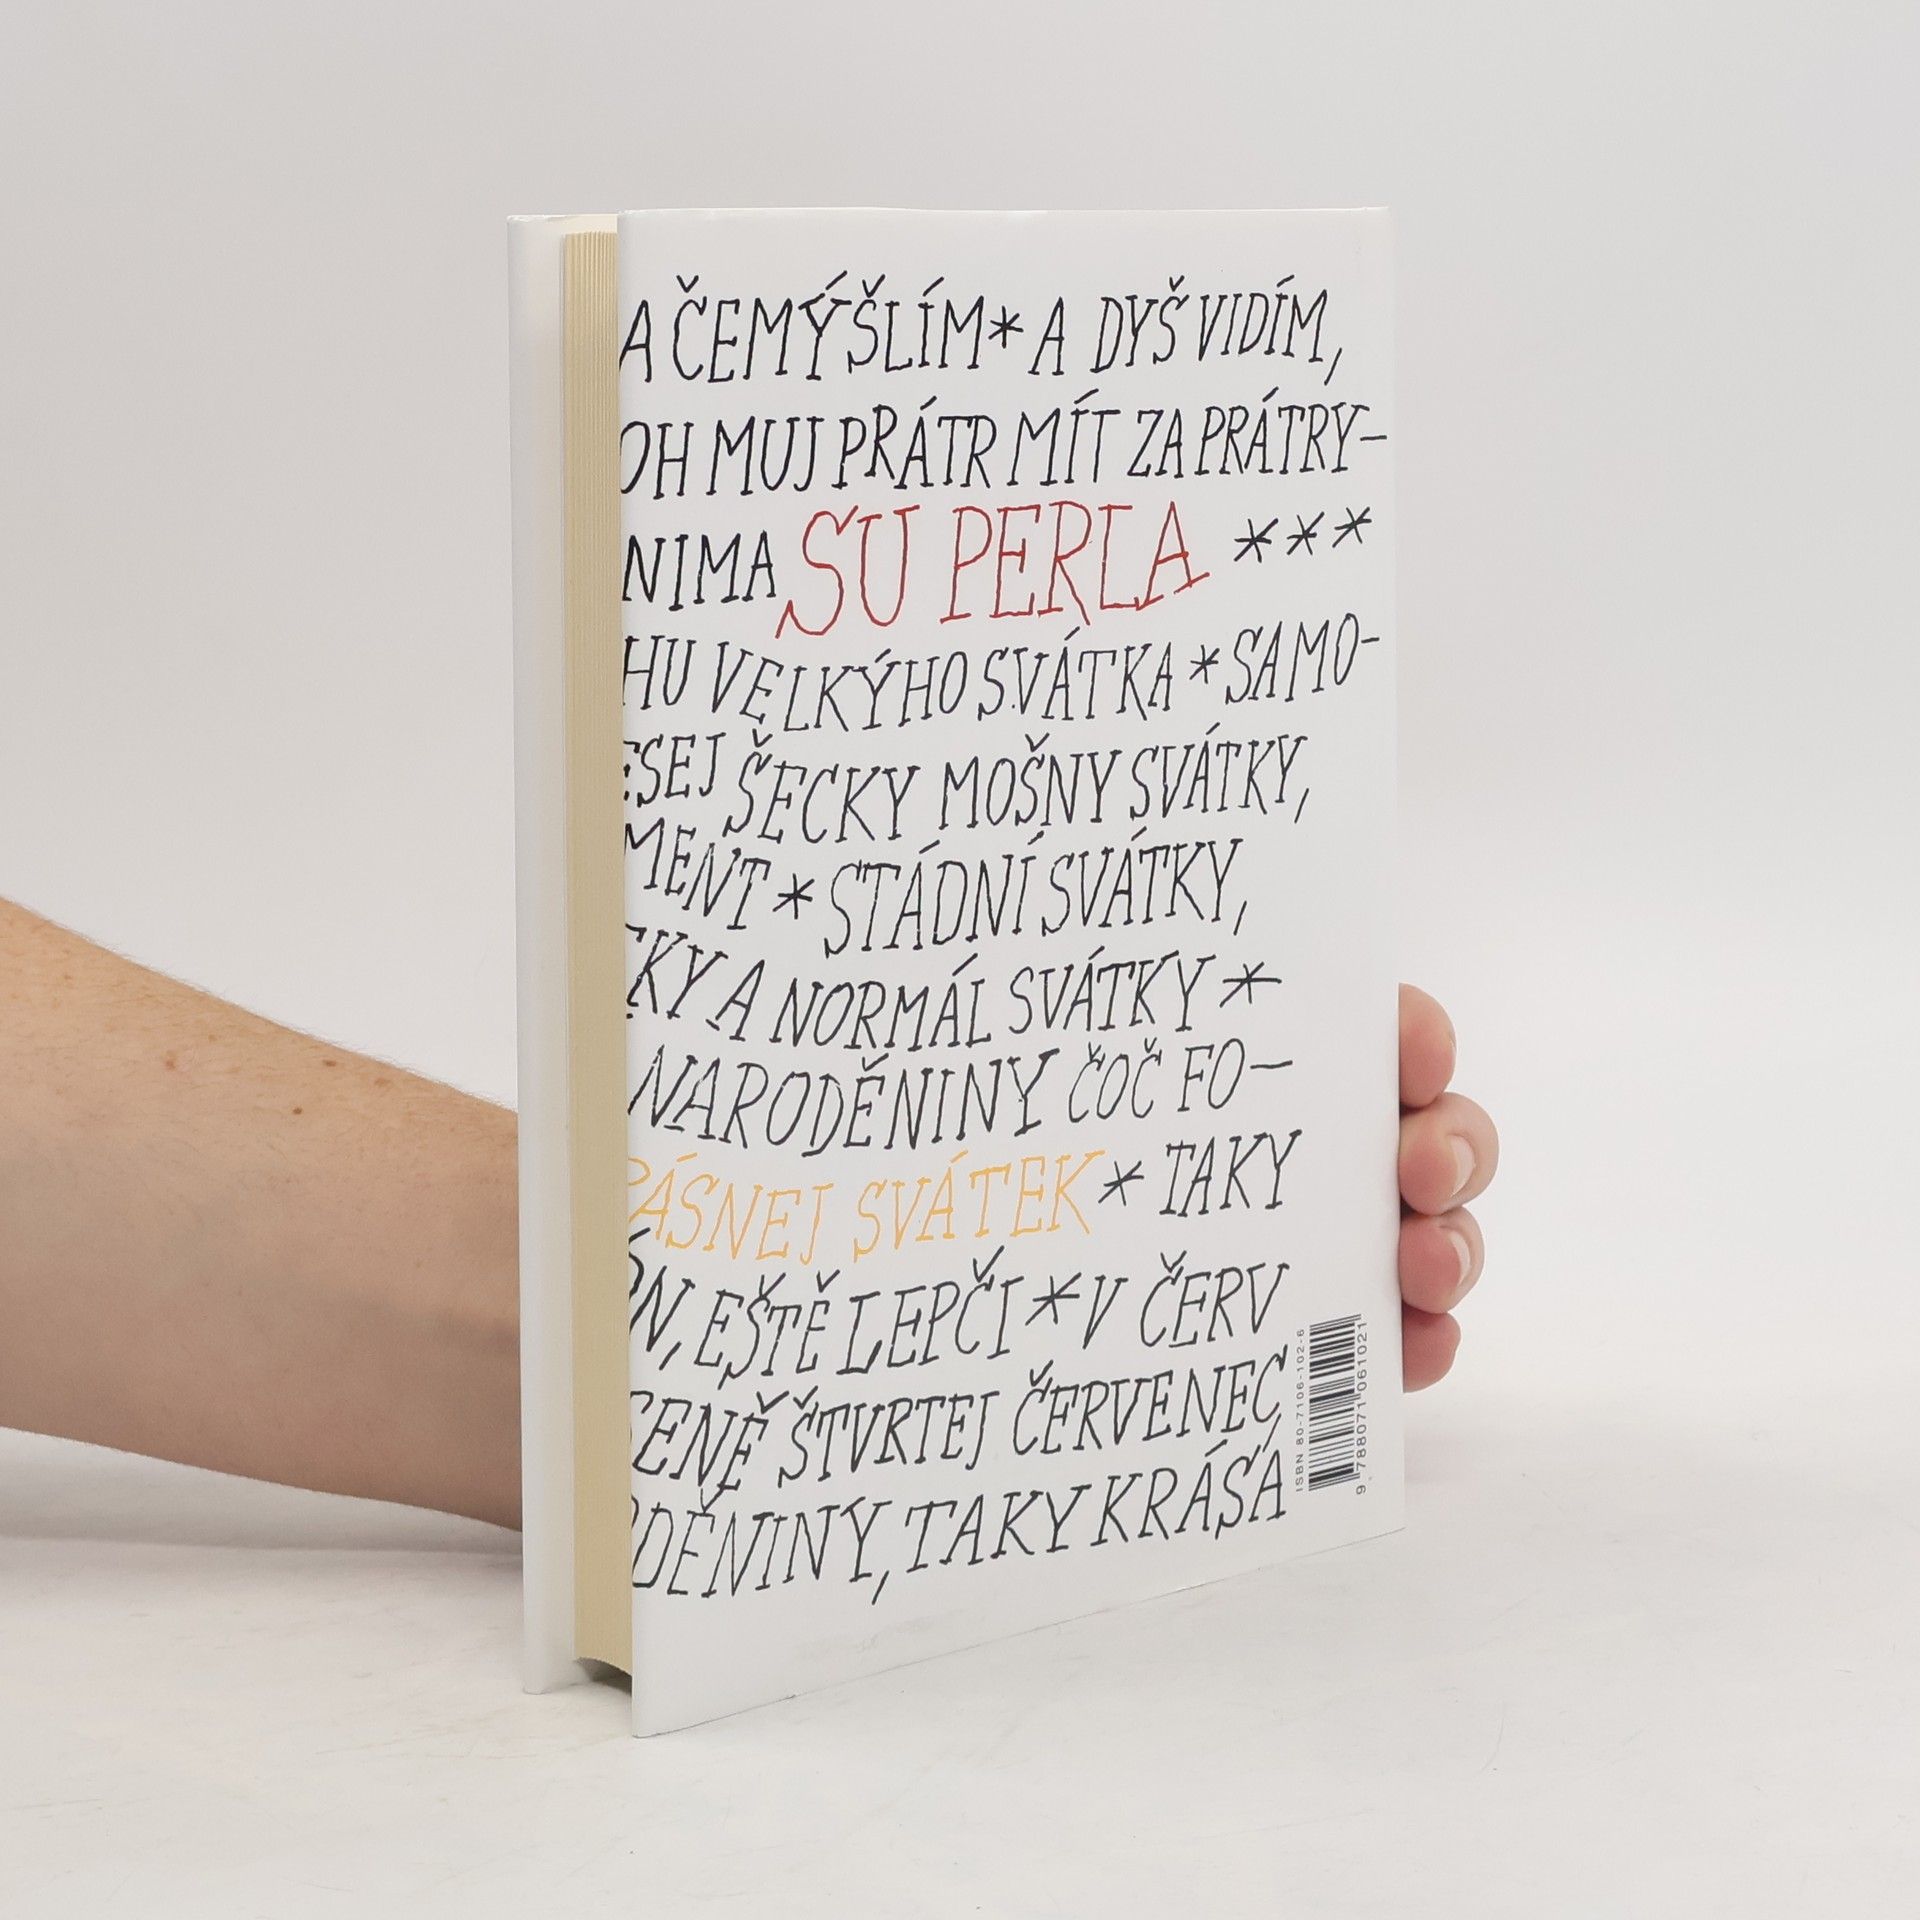 A ČEMÝŠLÍM * A DYŠ VIDÍM,
OH MUJ PRÁTR MÍT ZA PRÁTRY–
NIMA SU PERLA ***
HU VELKÝHO SVÁTKA * SAMO–
ESEJ ŠECKY MOŠNY SVÁTKY,
MENT * STÁDNÍ SVÁTKY,
KY A NORMÁL SVÁTKY *
NARODĚNINY ČOČ FO–
RÁSNEJ SVÁTEK * TAKY
ÓN, EŠTĚ LEPČI * V ČERV
SENĚ ŠTVRTEJ ČERVENEC,
ODĚNINY, TAKY KRÁSÁ
ISBN 80-7106-102-6
9 788071 061021